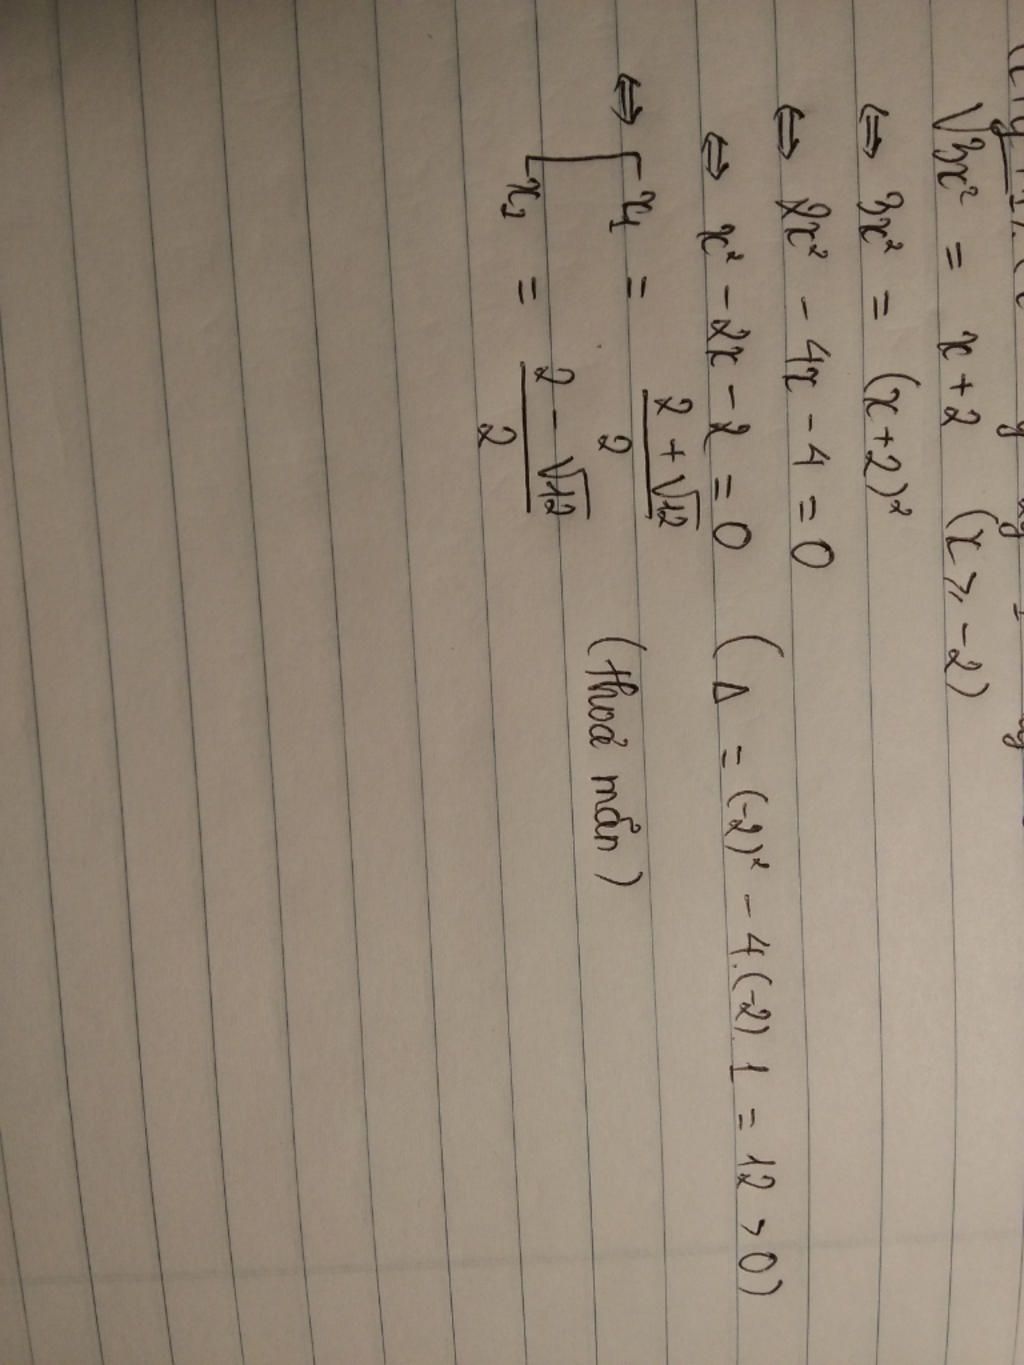 √3x² = x + 2 (x ≥ -2)
⇔ 3x² = (x + 2)²
⇔ 2x² - 4x - 4 = 0
⇔ x² - 2x - 2 = 0 (Δ = (-2)² - 4.(-2).1 = 12 > 0)
⇔ [ x₁ = (2 + √12)/2
x₂ = (2 - √12)/2 (thoả mãn)